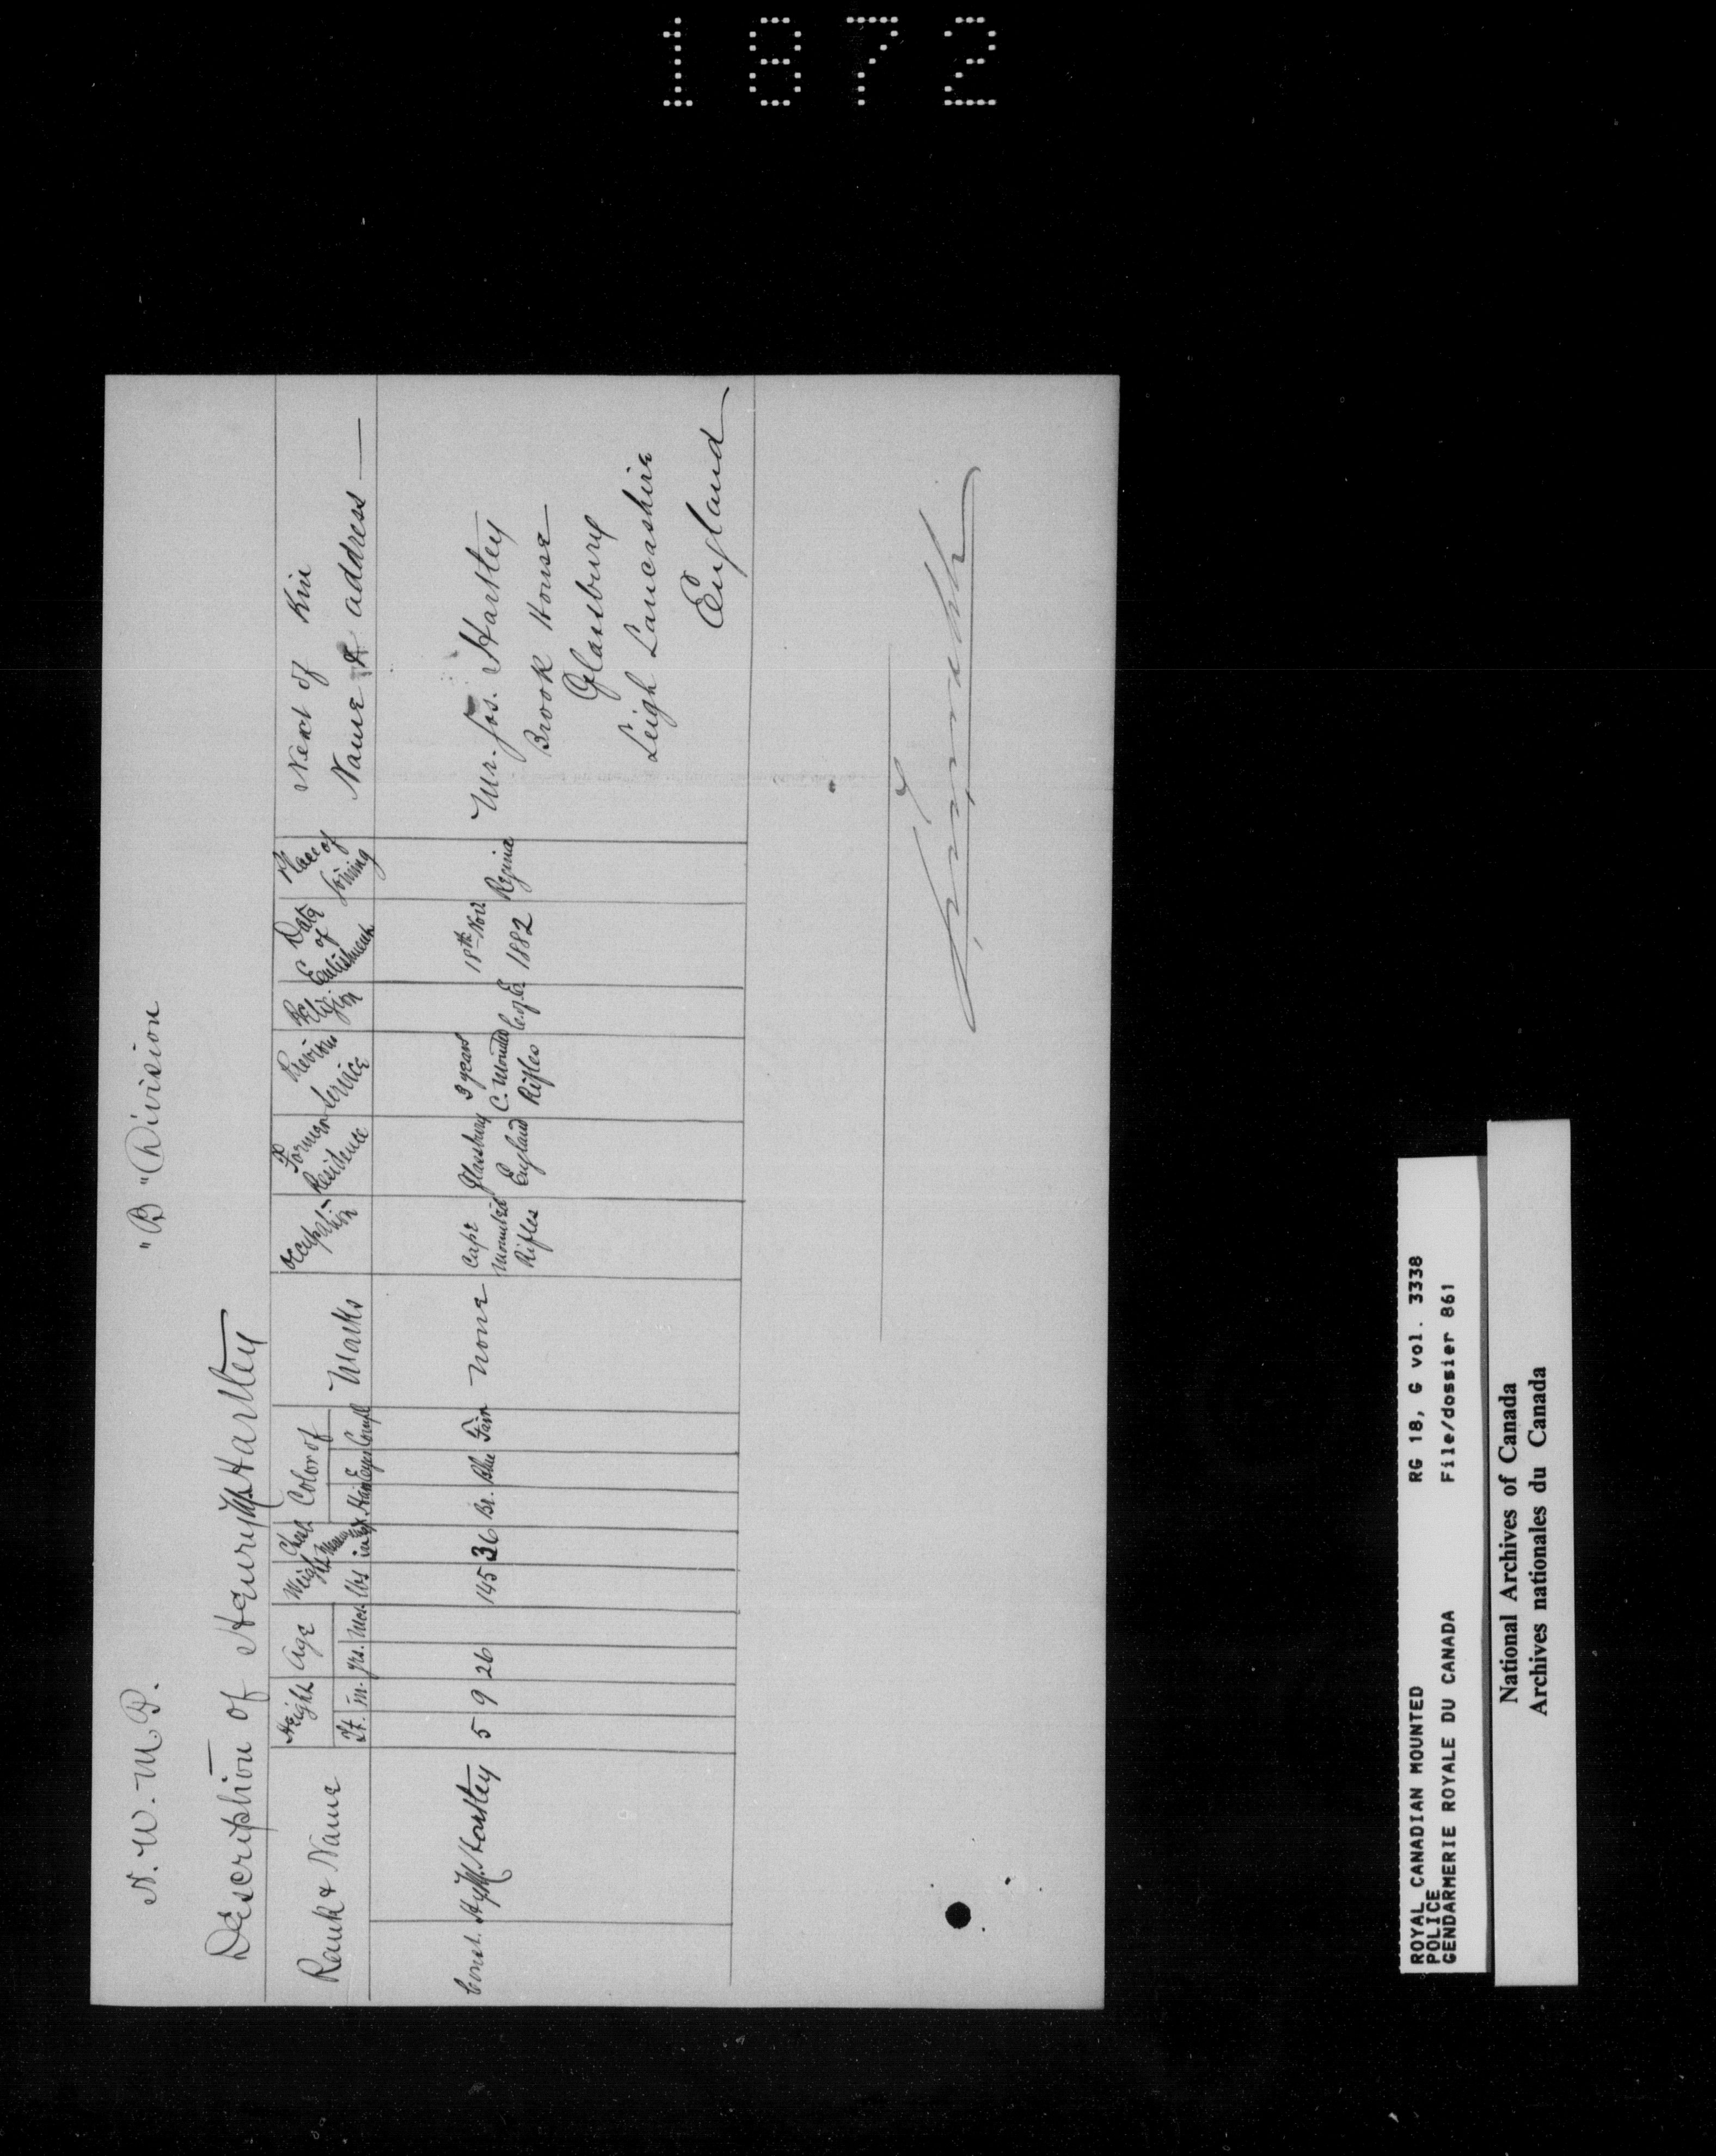 1872
N. W. M. P.
"B" Division
Description of Henry Hartley
Rank & Name
Height
Ft. in.
Age
yrs. Mos.
Weight
lbs
Chest
Color of
Hair Eyes Compl
Marks
Occupation
Former Residence
Previous Service
Religion
Date of Enlistment
Place of Joining
Next of Kin
Name & address
Const. Hy Hartley
5 9
26
145
36
Br. Blue Fair
none
Cape
Mounted
Rifles
Glassbury
England
3 years
C. Mounted
Rifles
C. of E.
18th Nov
1882
Regina
Mr. Jos. Hartley
Brook House
Glassbury
Leigh Lancashire
England
ROYAL CANADIAN MOUNTED
POLICE
GENDARMERIE ROYALE DU CANADA
RG 18, G vol. 3338
File/dossier 861
National Archives of Canada
Archives nationales du Canada